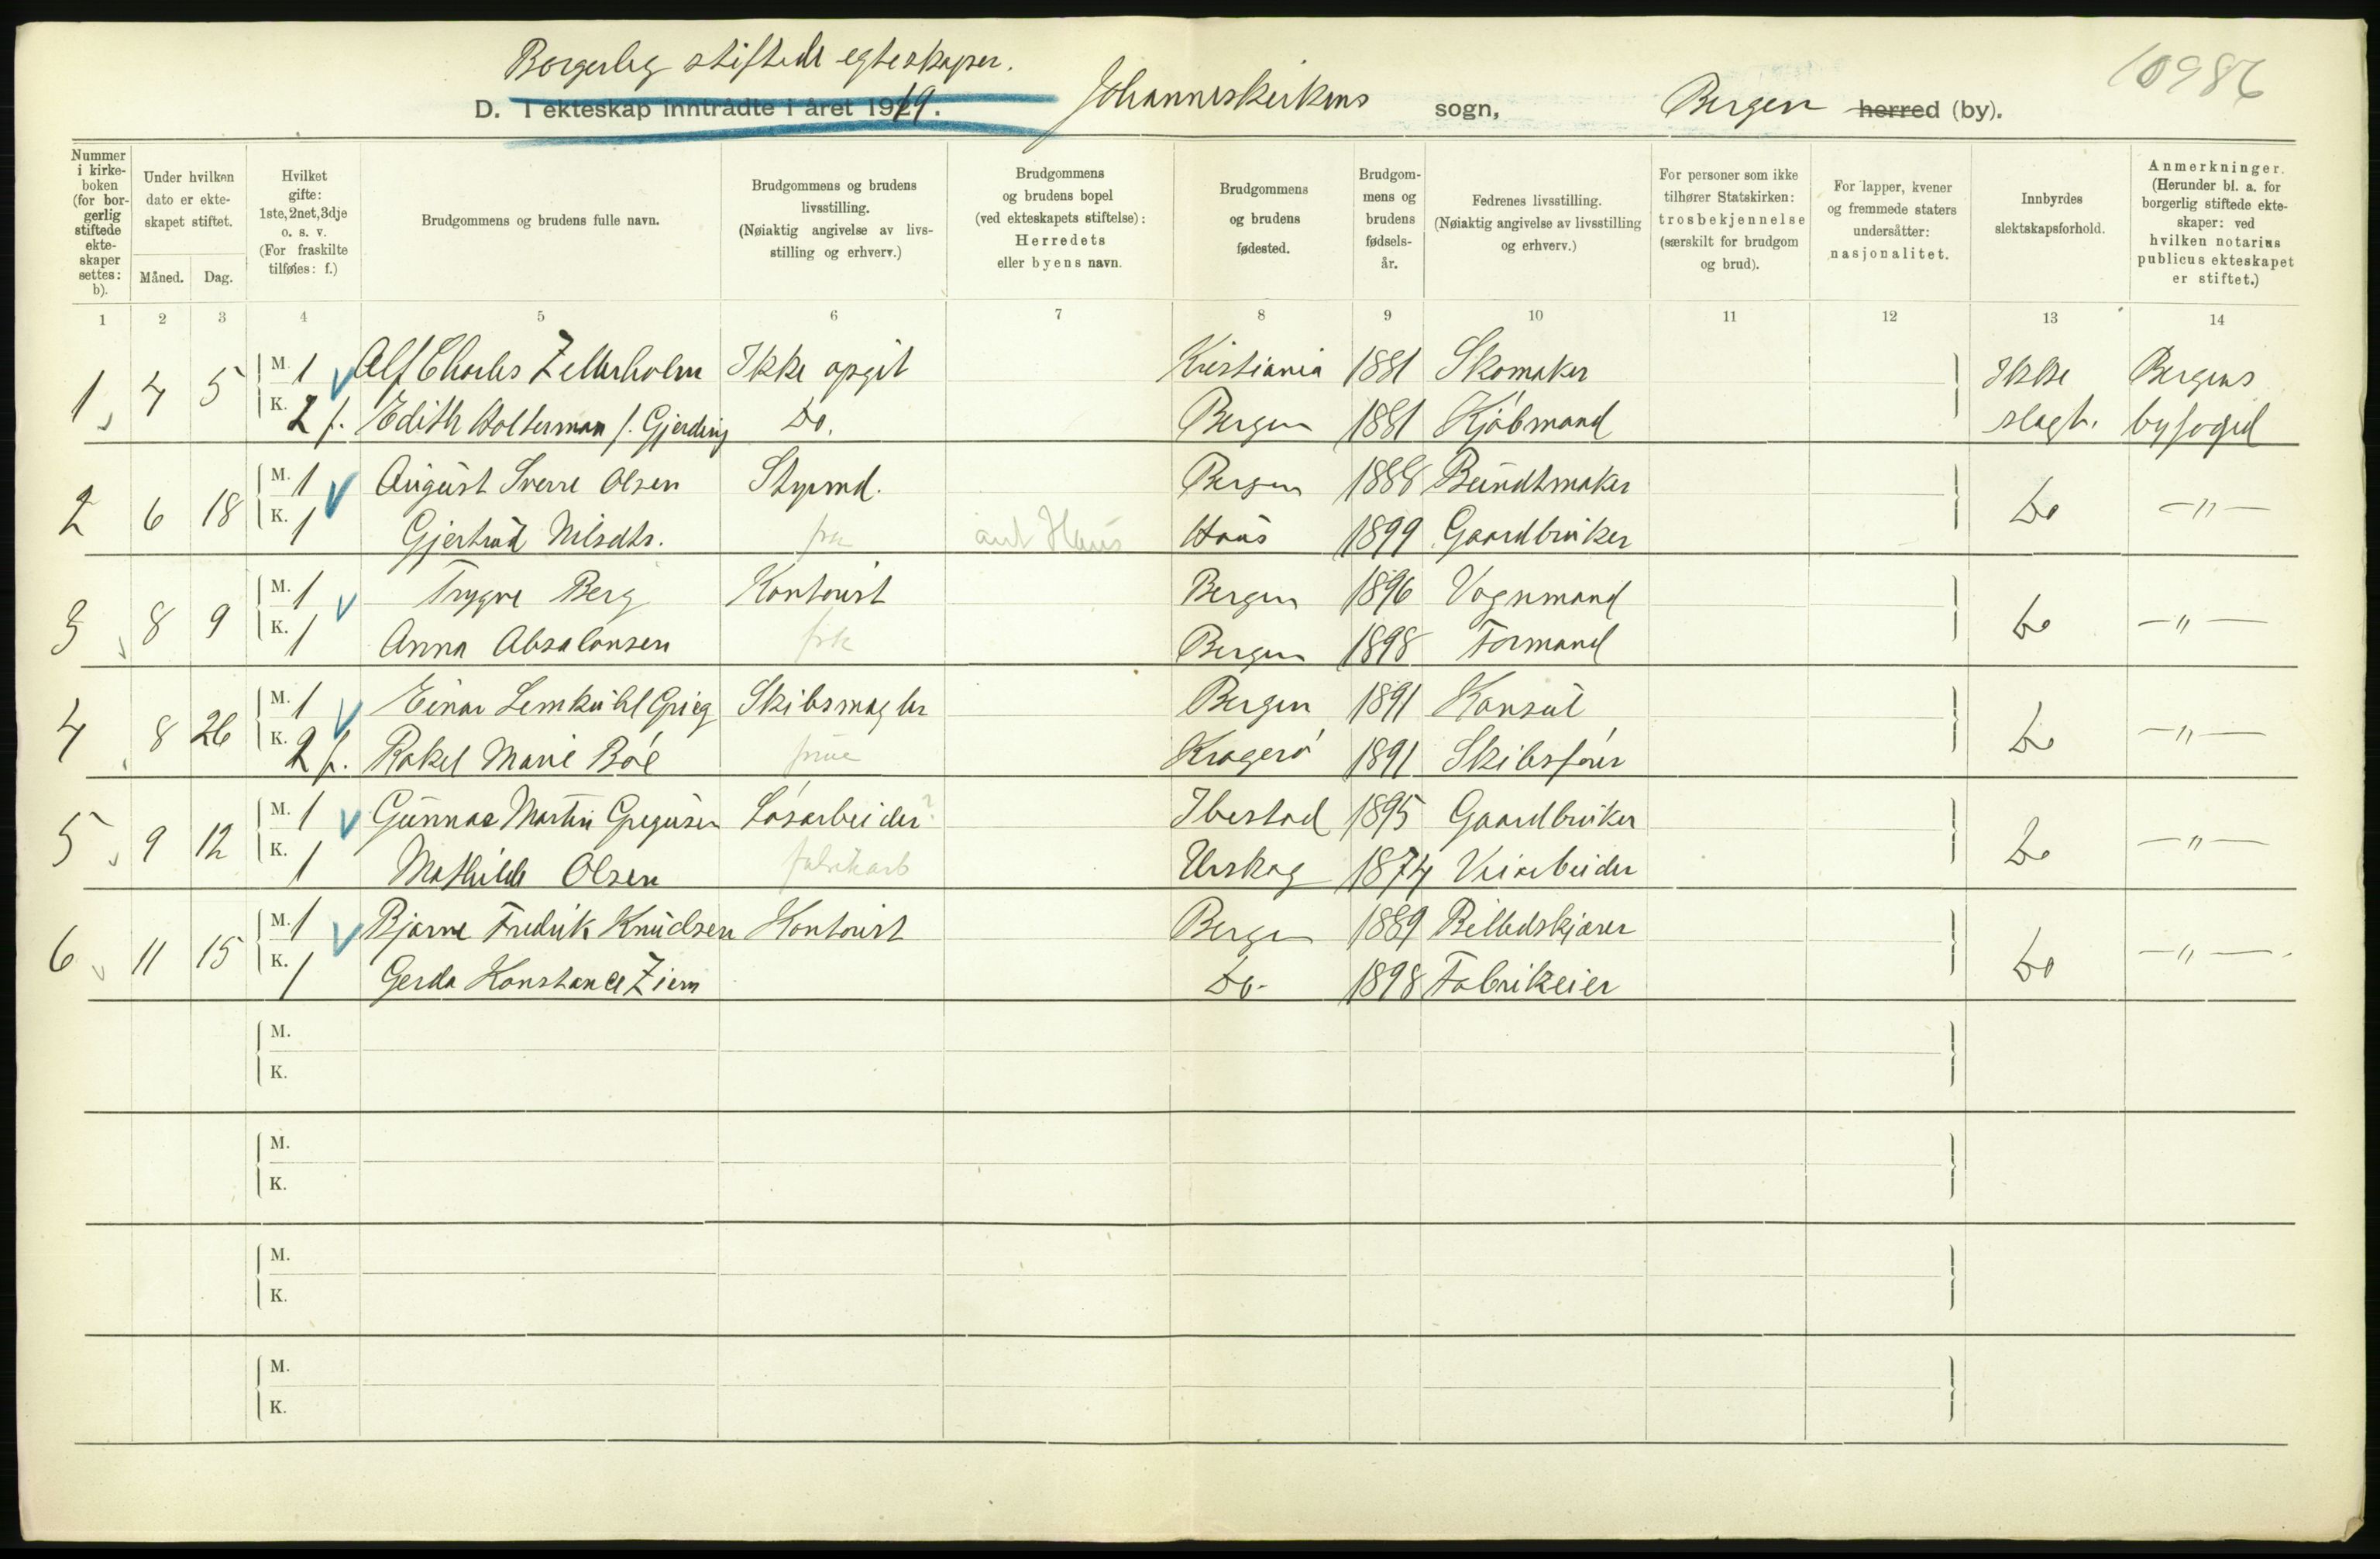 Borgerlig stiftede egteskaper.
10986
D. I ekteskap inntrådte i året 1919. Johanneskirkens sogn, Bergen herred (by).
Nummer i kirkeboken (for borgerlig stiftede ekteskaper settes: b).
Under hvilken dato er ekteskapet stiftet.
Måned. Dag.
Hvilket gifte: 1ste, 2net, 3dje o. s. v. (For fraskilte tilføies: f.)
Brudgommens og brudens fulle navn.
Brudgommens og brudens livsstilling. (Nøiaktig angivelse av livsstilling og erhverv.)
Brudgommens og brudens bopel (ved ekteskapets stiftelse): Herredets eller byens navn.
Brudgommens og brudens fødested.
Brudgommens og brudens fødselsår.
Fedrenes livsstilling. (Nøiaktig angivelse av livsstilling og erhverv.)
For personer som ikke tilhører Statskirken: trosbekjennelse (særskilt for brudgom og brud).
For lapper, kvener og fremmede staters undersåtter: nasjonalitet.
Innbyrdes slektskapsforhold.
Anmerkninger. (Herunder bl. a. for borgerlig stiftede ekteskaper: ved hvilken notarius publicus ekteskapet er stiftet.)
1 2 3 4 5 6 7 8 9 10 11 12 13 14
1 4 5 M. 1 Alf Charles Zetterholm Ikke opgit Kristiania 1881 Skomaker Ikke Bergens
K. 2 f. Edith Holterman f. Gjerding Do. Bergen 1881 Kjøbmand slegt. byfogd
2 6 18 M. 1 August Sverre Olsen Styrmd. Bergen 1888 Bundtmaker Do —"—
K. 1 Gjertrud Nilsdtr. frk ant Haus Haus 1899 Gaardbruker
3 8 9 M. 1 Trygve Berg Kontorist Bergen 1896 Vognmand Do —"—
K. 1 Anna Absalonsen frk Bergen 1898 Formand
4 8 26 M. 1 Einar Lemkuhl Grieg Skibsmægler Bergen 1891 Konsul Do —"—
K. 2 f. Rakel Marie Bøe frue Kragerø 1891 Skibsfører
5 9 12 M. 1 Gunnar Martin Gregusen Løsarbeider? Ibestad 1895 Gaardbruker Do —"—
K. 1 Mathilde Olsen fabrikarb Urskog 1874 Veiarbeider
6 11 15 M. 1 Bjarne Fredrik Knudsen Kontorist Bergen 1889 Billedskjærer Do —"—
K. 1 Gerda Konstance Ziem Do- 1898 Fabrikeier
M.
K.
M.
K.
M.
K.
M.
K.